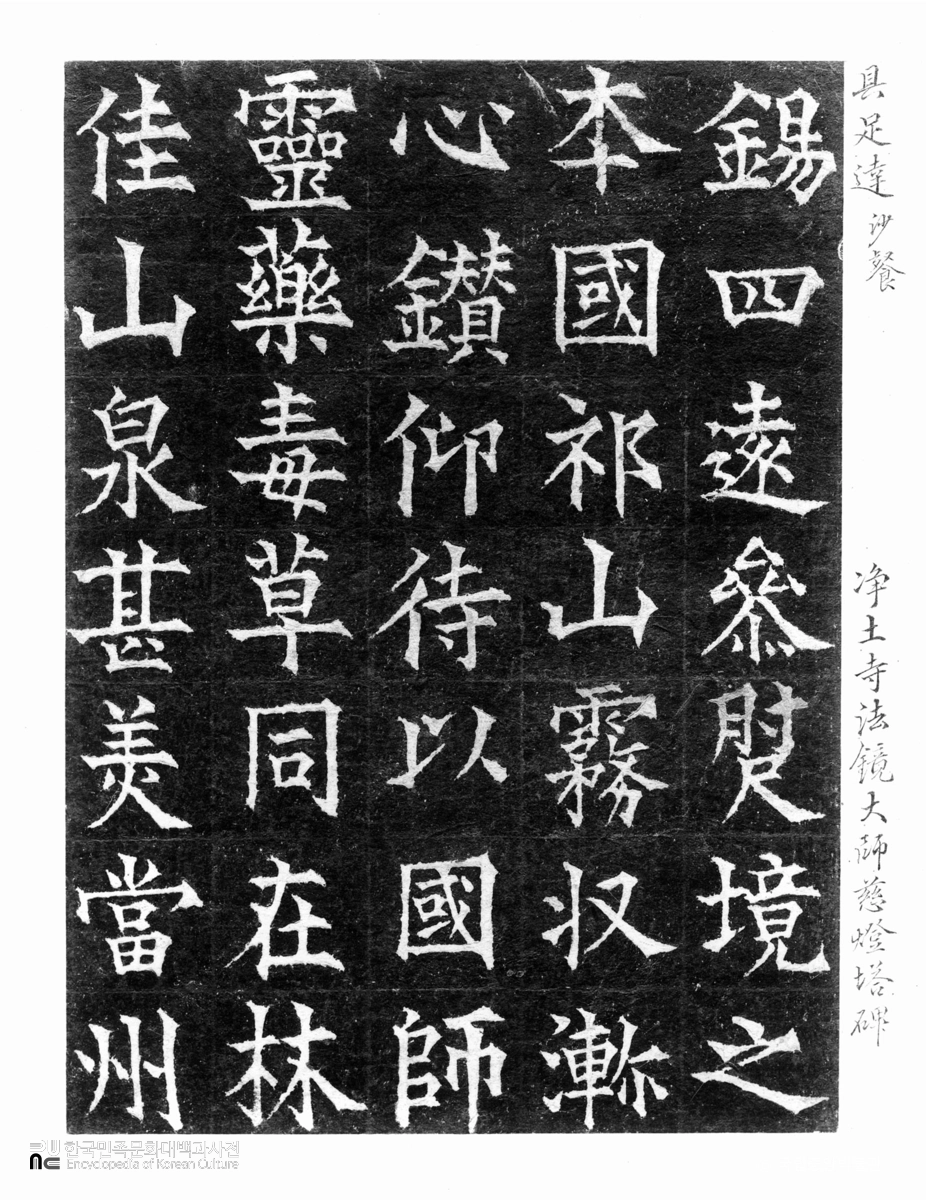 具足達 沙餐
净土寺法鏡大師慈燈塔碑
錫四遠叅境之
本國祁山霧収漸
心鑽仰待以國師
靈藥毒草同在林
佳山泉甚美當州
한국민족문화대백과사전
Encyclopedia of Korean Culture